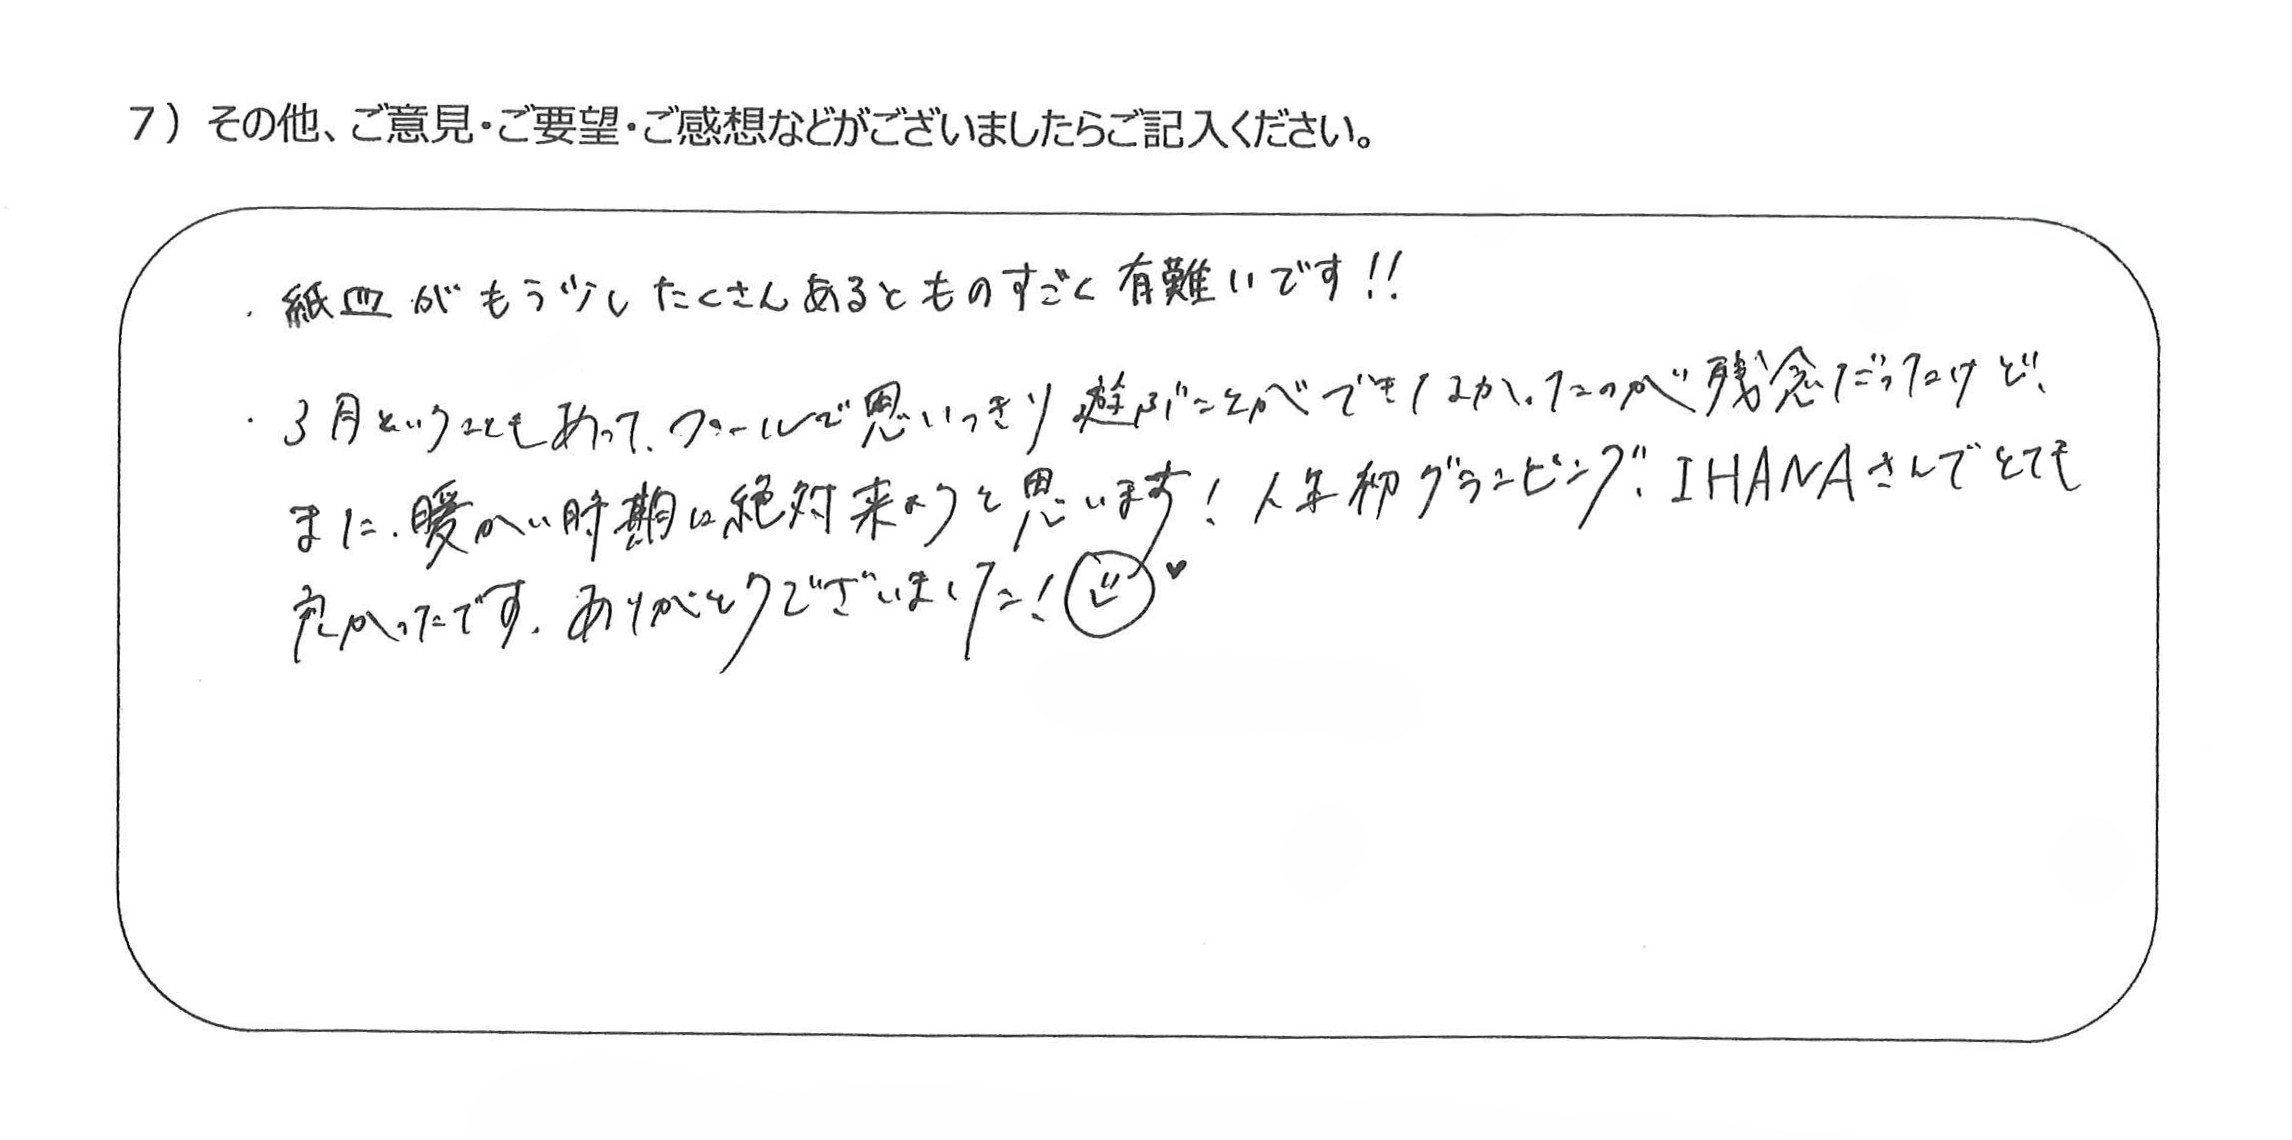 7）その他、ご意見・ご要望・ご感想などがございましたらご記入ください。
・紙皿がもう少したくさんあるとものすごく有難いです!!
・3月ということもあって、プールで思いっきり遊ぶことができなかったのが残念だったけど、
また、暖かい時期に絶対来ようと思います！人生初グランピング、IHANAさんでとても
良かったです。ありがとうございました！